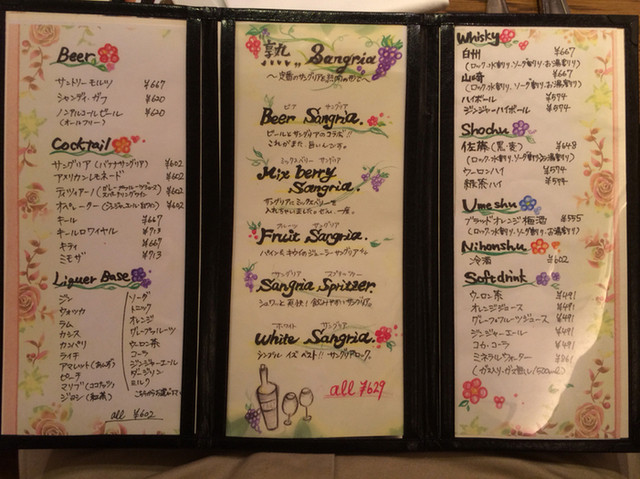 Beer
サントリー モルツ ¥667
シャンディ・ガフ ¥620
ノンアルコールビール ¥620
(オールフリー)
Cocktail
サングリア (バナナサングリア) ¥602
アメリカンレモネード ¥602
ティツィアーノ ¥602
オペレーター (ジンジャエール 白ワイン) ¥602
キール ¥667
キールロワイヤル ¥713
キティ ¥667
ミモザ ¥713
Liquer Base
ジン
ウォッカ
ラム
カシス
カンパリ
ライチ
アマレット
ピーチ
マリブ (ココナッツ)
ソーダ
トニック
オレンジ
グレープフルーツ
ウーロン茶
コーラ
ジンジャーエール
ミルク
all ¥602
熟 Sangria
Beer Sangria
ビア サングリア
ビールとサングリアのコラボ!!
これがまた、旨いんです。
ミックスベリー サングリア
Mix berry
Sangria
サングリアにミックスベリーを
フルーツ サングリア
Fruit Sangria
サングリア スプリッツァー
Sangria Spritzer
ホワイト サングリア
White Sangria
シンプル イズ ベスト!! サングリアロック。
all ¥629
Whisky
白州 ¥667
(ロック、水割り、ソーダ割り、お湯割り)
山崎 ¥667
(ロック、水割り、ソーダ割り、お湯割り)
ハイボール ¥574
ジンジャーハイボール ¥574
Shochu
佐藤 (黒・麦) ¥648
(ロック、水割り、ソーダ割り、お湯割り)
ウーロンハイ ¥574
緑茶ハイ ¥574
Umeshu
ブラッドオレンジ梅酒 ¥555
(ロック、水割り、ソーダ割り、お湯割り)
Nihonshu
冷酒 ¥602
Softdrink
ウーロン茶 ¥491
オレンジジュース ¥491
グレープフルーツジュース ¥491
ジンジャーエール ¥491
コカ・コーラ ¥491
ミネラルウォーター
(ガス入り・ガス無し/500ml)